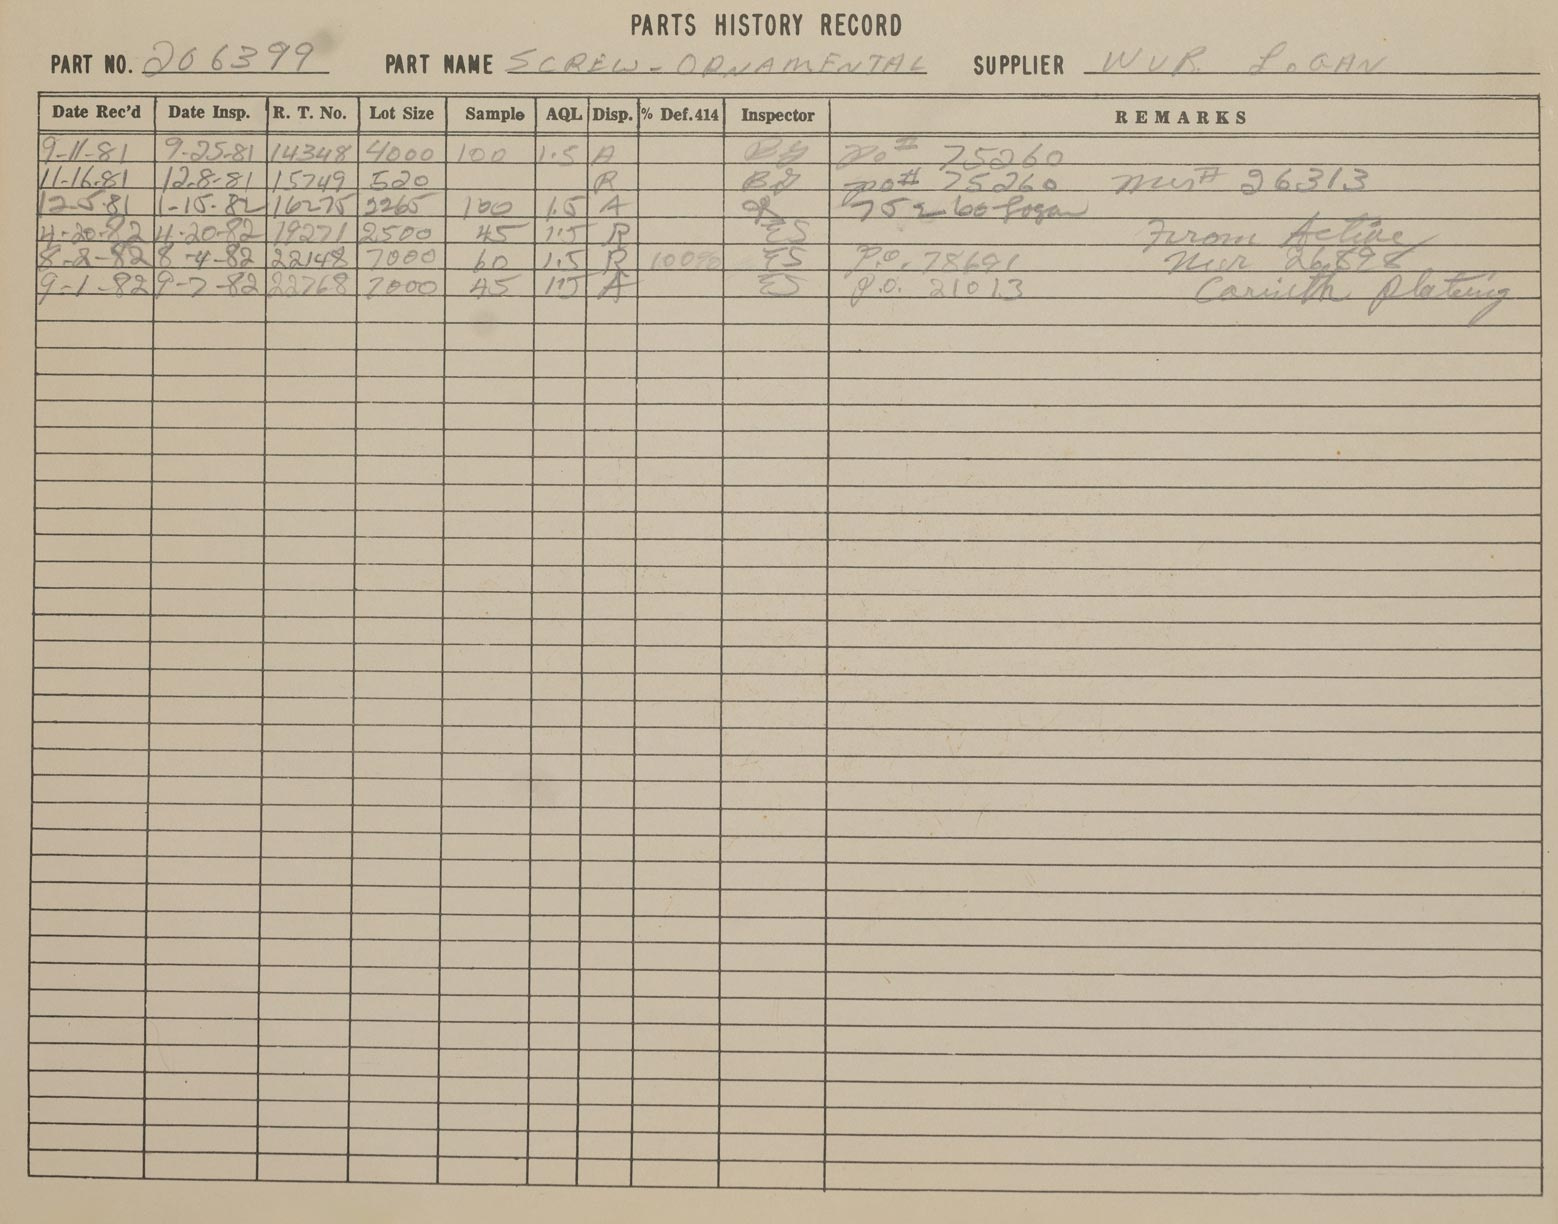 PARTS HISTORY RECORD
PART NO. 206399 PART NAME SCREW - ORNAMENTAL SUPPLIER LOGAN
Date Rec'd Date Insp. R. T. No. Lot Size Sample AQL Disp. % Def.414 Inspector REMARKS
9-11-81 9-25-81 14348 4000 100 1.5 A BG PO # 75260
11-16-81 12-8-81 15749 520 R BG PO# 75260 MRR# 26313
12-5-81 1-15-82 16275 2265 100 1.5 A 75260 Logan
4-20-82 4-20-82 19271 2500 45 1.5 R ES From Active
8-2-82 8-4-82 22148 7000 60 1.5 R 100% ES P.O. 78691 26898
9-1-82 9-7-82 22768 7000 45 1.5 A ES P.O. 21013 Plating